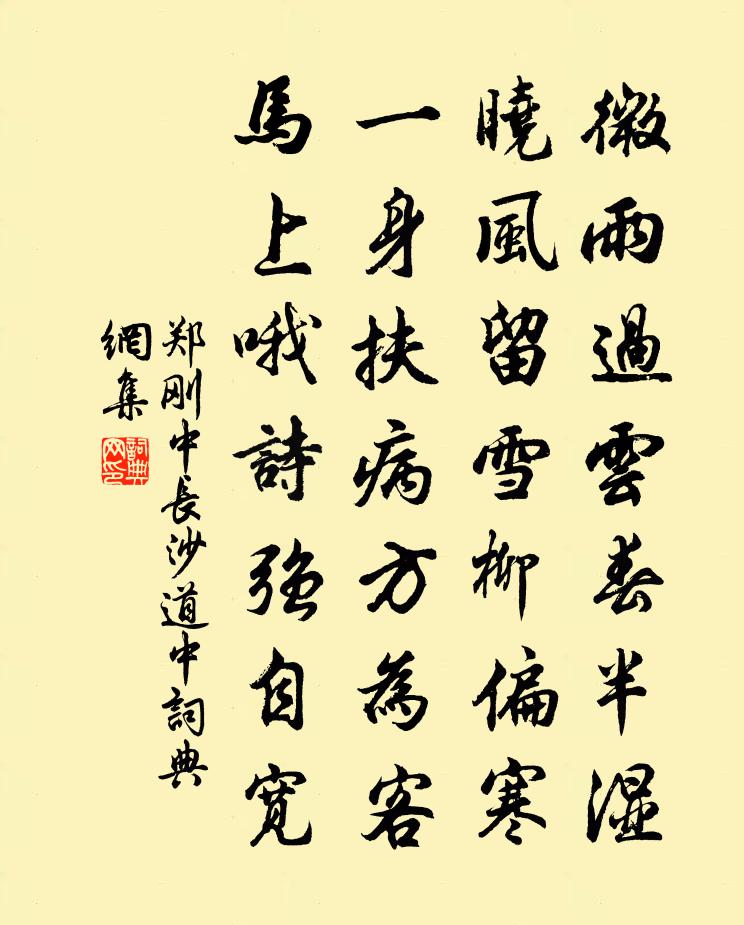 微雨過雲春半湿
曉風留雪柳偏寒
一身扶病方為客
馬上哦詩強自宽
郑刚中長沙道中詞典
網集
詞典
网印